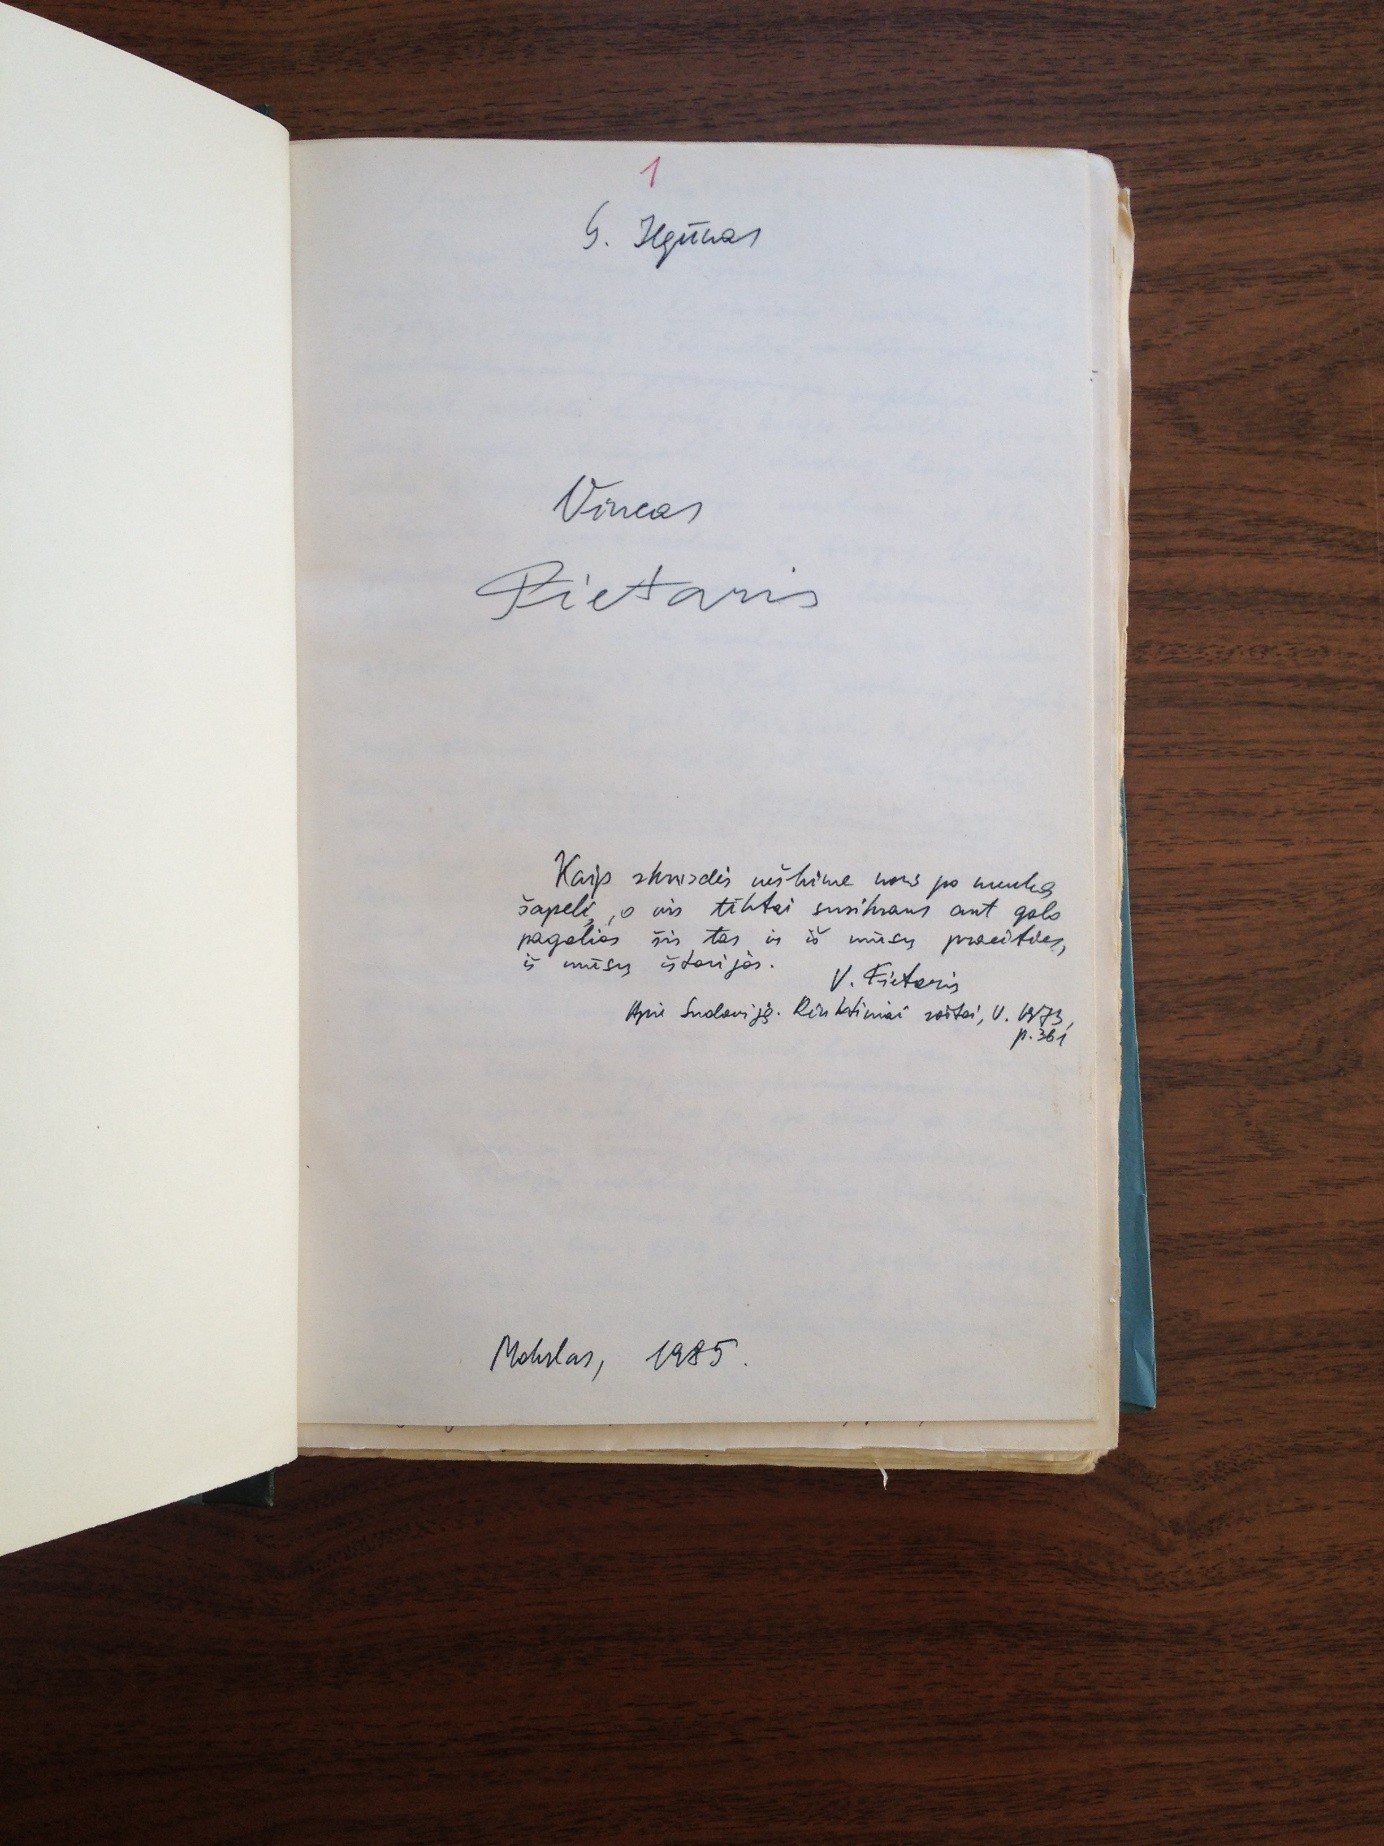 1
G. Ilgūnas
Vincas
Pietaris
Kaip skruzdės neškime nors po menką
šapelį, o vis tiktai susikraus ant galo
pagalios šis tas ir iš mūsų praeities,
iš mūsų istorijos.
V. Pietaris
Apie Sudaviją. Rinktiniai raštai, V. 1973,
p. 361
Mokslas, 1985.